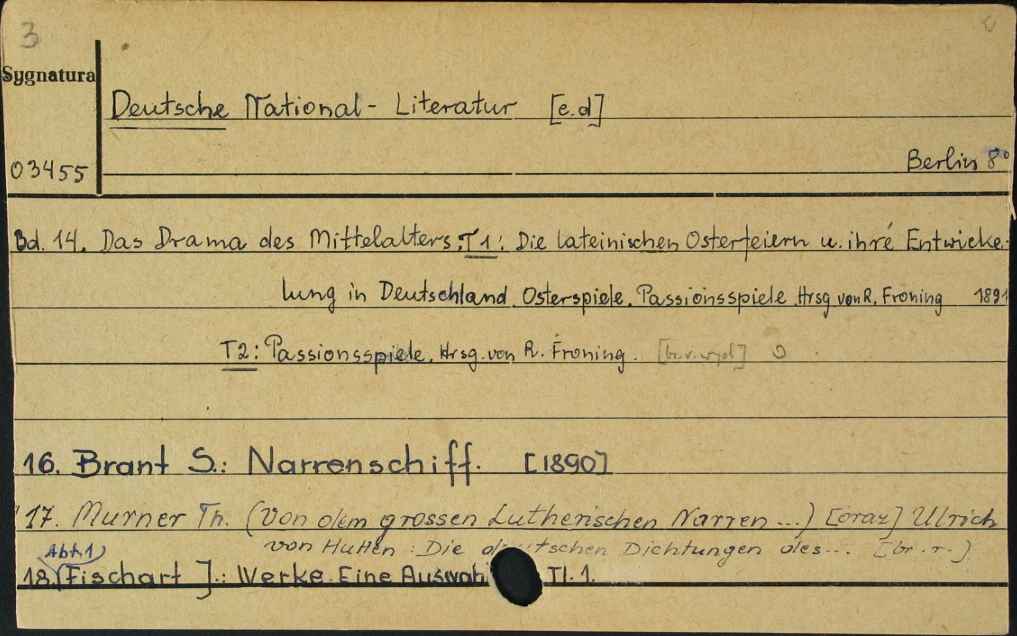 3
Sygnatura
Deutsche National-Literatur [e.d]
03455
Berlin 8°
Bd. 14. Das Drama des Mittelalters. T1: Die lateinischen Osterfeiern u. ihre Entwicke-
lung in Deutschland. Osterspiele. Passionsspiele. Hrsg von R. Froning 1891
T2: Passionsspiele. Hrsg. von R. Froning. [br. r. wyd]
16. Brant S.: Narrenschiff. [1890]
17. Murner Th. (Von dem grossen Lutherischen Narren...) [oraz] Ulrich
von Hutten: Die deutschen Dichtungen des... [br. r.]
Abt. 1
18. Fischart J.: Werke. Eine Auswahl Tl. 1.